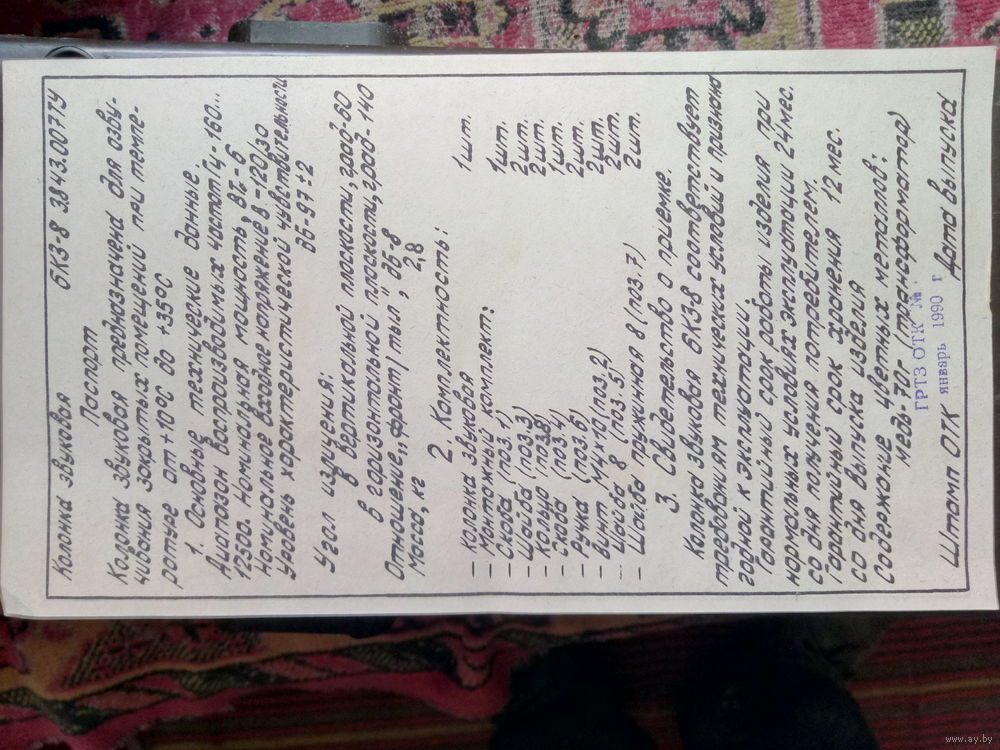 Колонка звуковая 6КЗ-8 3.843.007ТУ
Паспорт
Колонка звуковая предназначена для озву-
чивания закрытых помещений при темпе-
ратуре от +10°С до +35°С
1. Основные технические данные.
Диапазон воспроизводимых частот, Гц-160...
12500. Номинальная мощность, Вт-6
Номинальное входное напряжение В -120/30
Уровень характеристической чувствительности
дБ-97±2
Угол излучения:
в вертикальной плоскости, град-60
в горизонтальной плоскости, град-140
Отношение „фронт/тыл", дБ-8
Масса, кг 2,8
2. Комплектность:
— колонка звуковая 1шт.
— Монтажный комплект:
— Скоба (поз. 1) 1шт.
— Шайба (поз. 3) 2шт.
— Кольцо (поз. 8) 2шт.
— скоба (поз. 4) 1шт.
— Ручка (поз. 6) 2шт.
— Винт М4×10 (поз. 2) 2шт.
— Шайба 8 (поз. 5) 2шт.
— Шайба пружинная 8 (поз. 7) 2шт.
3. Свидетельство о приемке.
Колонка звуковая 6КЗ-8 соответствует
требованиям технических условий и признана
годной к эксплуатации.
Гарантийный срок работы изделия при
нормальных условиях эксплуатации 24 мес.
со дня получения потребителем.
Гарантийный срок хранения 12 мес.
со дня выпуска изделия
Содержание цветных металлов:
медь-70г (трансформатор)
ГРТЗ ОТК №
Штамп ОТК январь 1990 г Дата выпуска
www.ay.by